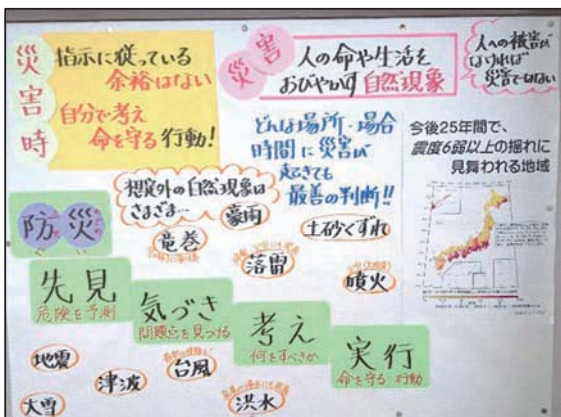 災害時
指示に従っている
余裕はない
自分で考え
命を守る行動!
災害
人の命や生活を
おびやかす自然現象
人への被害が
なければ
災害ではない
どんな場所・場合
時間に災害が
起きても
最善の判断!!
今後25年間で、
震度6弱以上の揺れに
見舞われる地域
想定外の自然現象は
さまざま…
防災
竜巻
豪雨
土砂くずれ
落雷
噴火
先見
危険を予測
気づき
問題点を見つける
考え
何をすべきか
実行
命を守る行動
地震
津波
台風
大雪
洪水